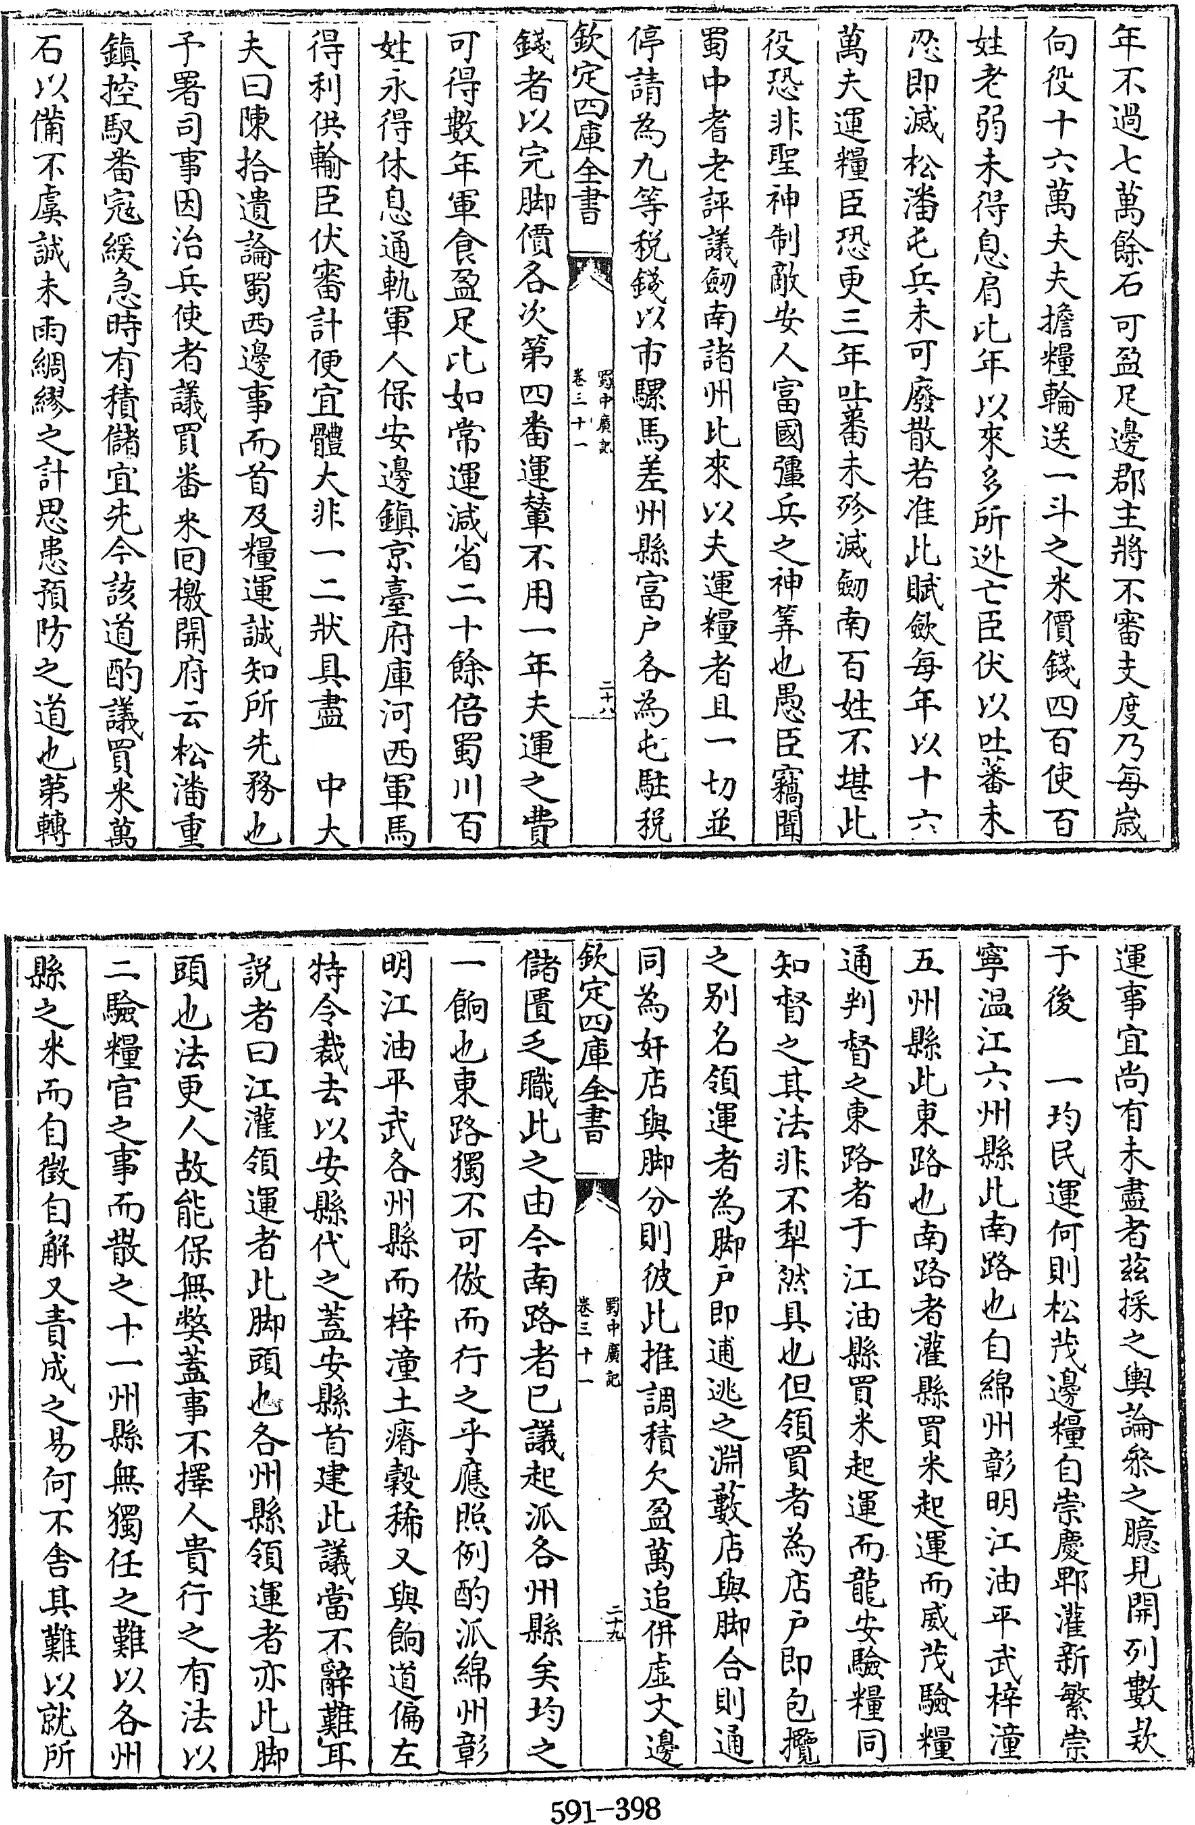 年不過七萬餘石可盈足邊郡主將不審支度乃每嵗
向役十六萬夫夫擔糧輪送一斗之米價錢四百使百
姓老弱未得息肩比年以來多所逃亡臣伏以吐蕃未
忍即滅松潘屯兵未可廢散若准此賦歛每年以十六
萬夫運糧臣恐更三年吐蕃未殄滅劒南百姓不堪此
役恐非聖神制敵安人富國彊兵之神筭也愚臣竊聞
蜀中耆老評議劒南諸州比來以夫運糧者且一切並
停請為九等税錢以市騾馬差州縣富户各為屯駐税
欽定四庫全書
蜀中廣記
卷三十一
二十八
錢者以完脚價各次第四番運輦不用一年夫運之費
可得數年軍食盈足比如常運減省二十餘倍蜀川百
姓永得休息通軌軍人保安邊鎮京臺府庫河西軍馬
得利供輸臣伏審計便宜體大非一二狀具盡　中大
夫曰陳拾遺論蜀西邊事而首及糧運誠知所先務也
予署司事因治兵使者議買番米囘檄開府云松潘重
鎮控馭番寇緩急時有積儲宜先今該道酌議買米萬
石以備不虞誠未雨綢繆之計思患預防之道也第轉
運事宜尚有未盡者兹採之輿論叅之臆見開列數欵
于後　一均民運何則松茂邊糧自崇慶郫灌新繁崇
寧温江六州縣此南路也自綿州彰明江油平武梓潼
五州縣此東路也南路者灌縣買米起運而威茂驗糧
通判督之東路者于江油縣買米起運而龍安驗糧同
知督之其法非不犁然具也但領買者為店户即包攬
之别名領運者為脚户即逋逃之淵藪店與脚合則通
同為奸店與脚分則彼此推調積欠盈萬追併虚文邊
欽定四庫全書
蜀中廣記
卷三十一
二十九
儲匱乏職此之由今南路者已議起派各州縣矣均之
一餉也東路獨不可倣而行之乎應照例酌派綿州彰
明江油平武各州縣而梓潼土瘠穀稀又與餉道偏左
特令裁去以安縣代之蓋安縣首建此議當不辭難耳
説者曰江灌領運者此脚頭也各州縣領運者亦此脚
頭也法更人故能保無弊蓋事不擇人貴行之有法以
二驗糧官之事而散之十一州縣無獨任之難以各州
縣之米而自徵自解又責成之易何不舍其難以就所
591-398